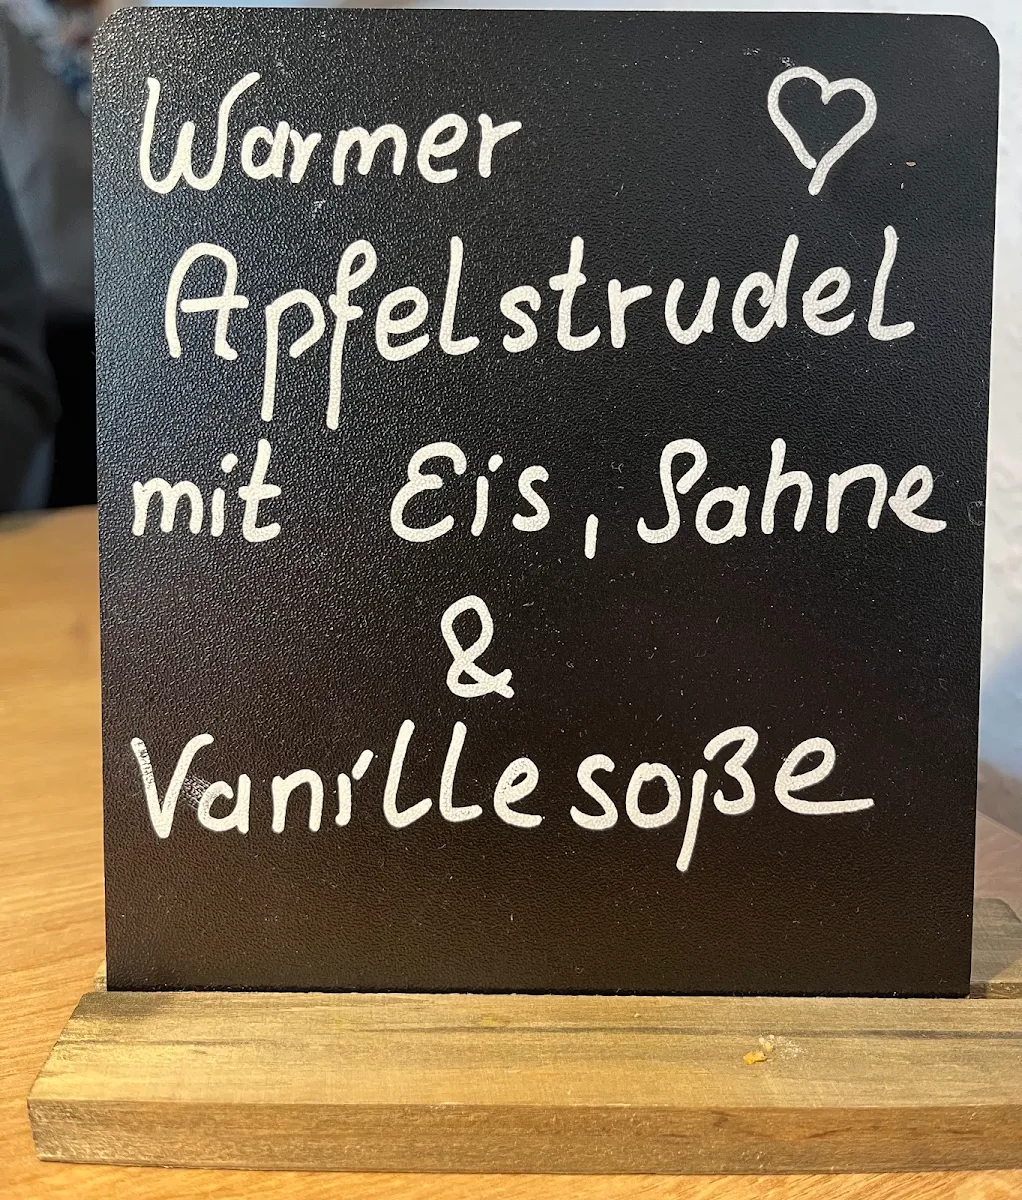 Warmer ♡
Apfelstrudel
mit Eis, Sahne
&
Vanillesoße